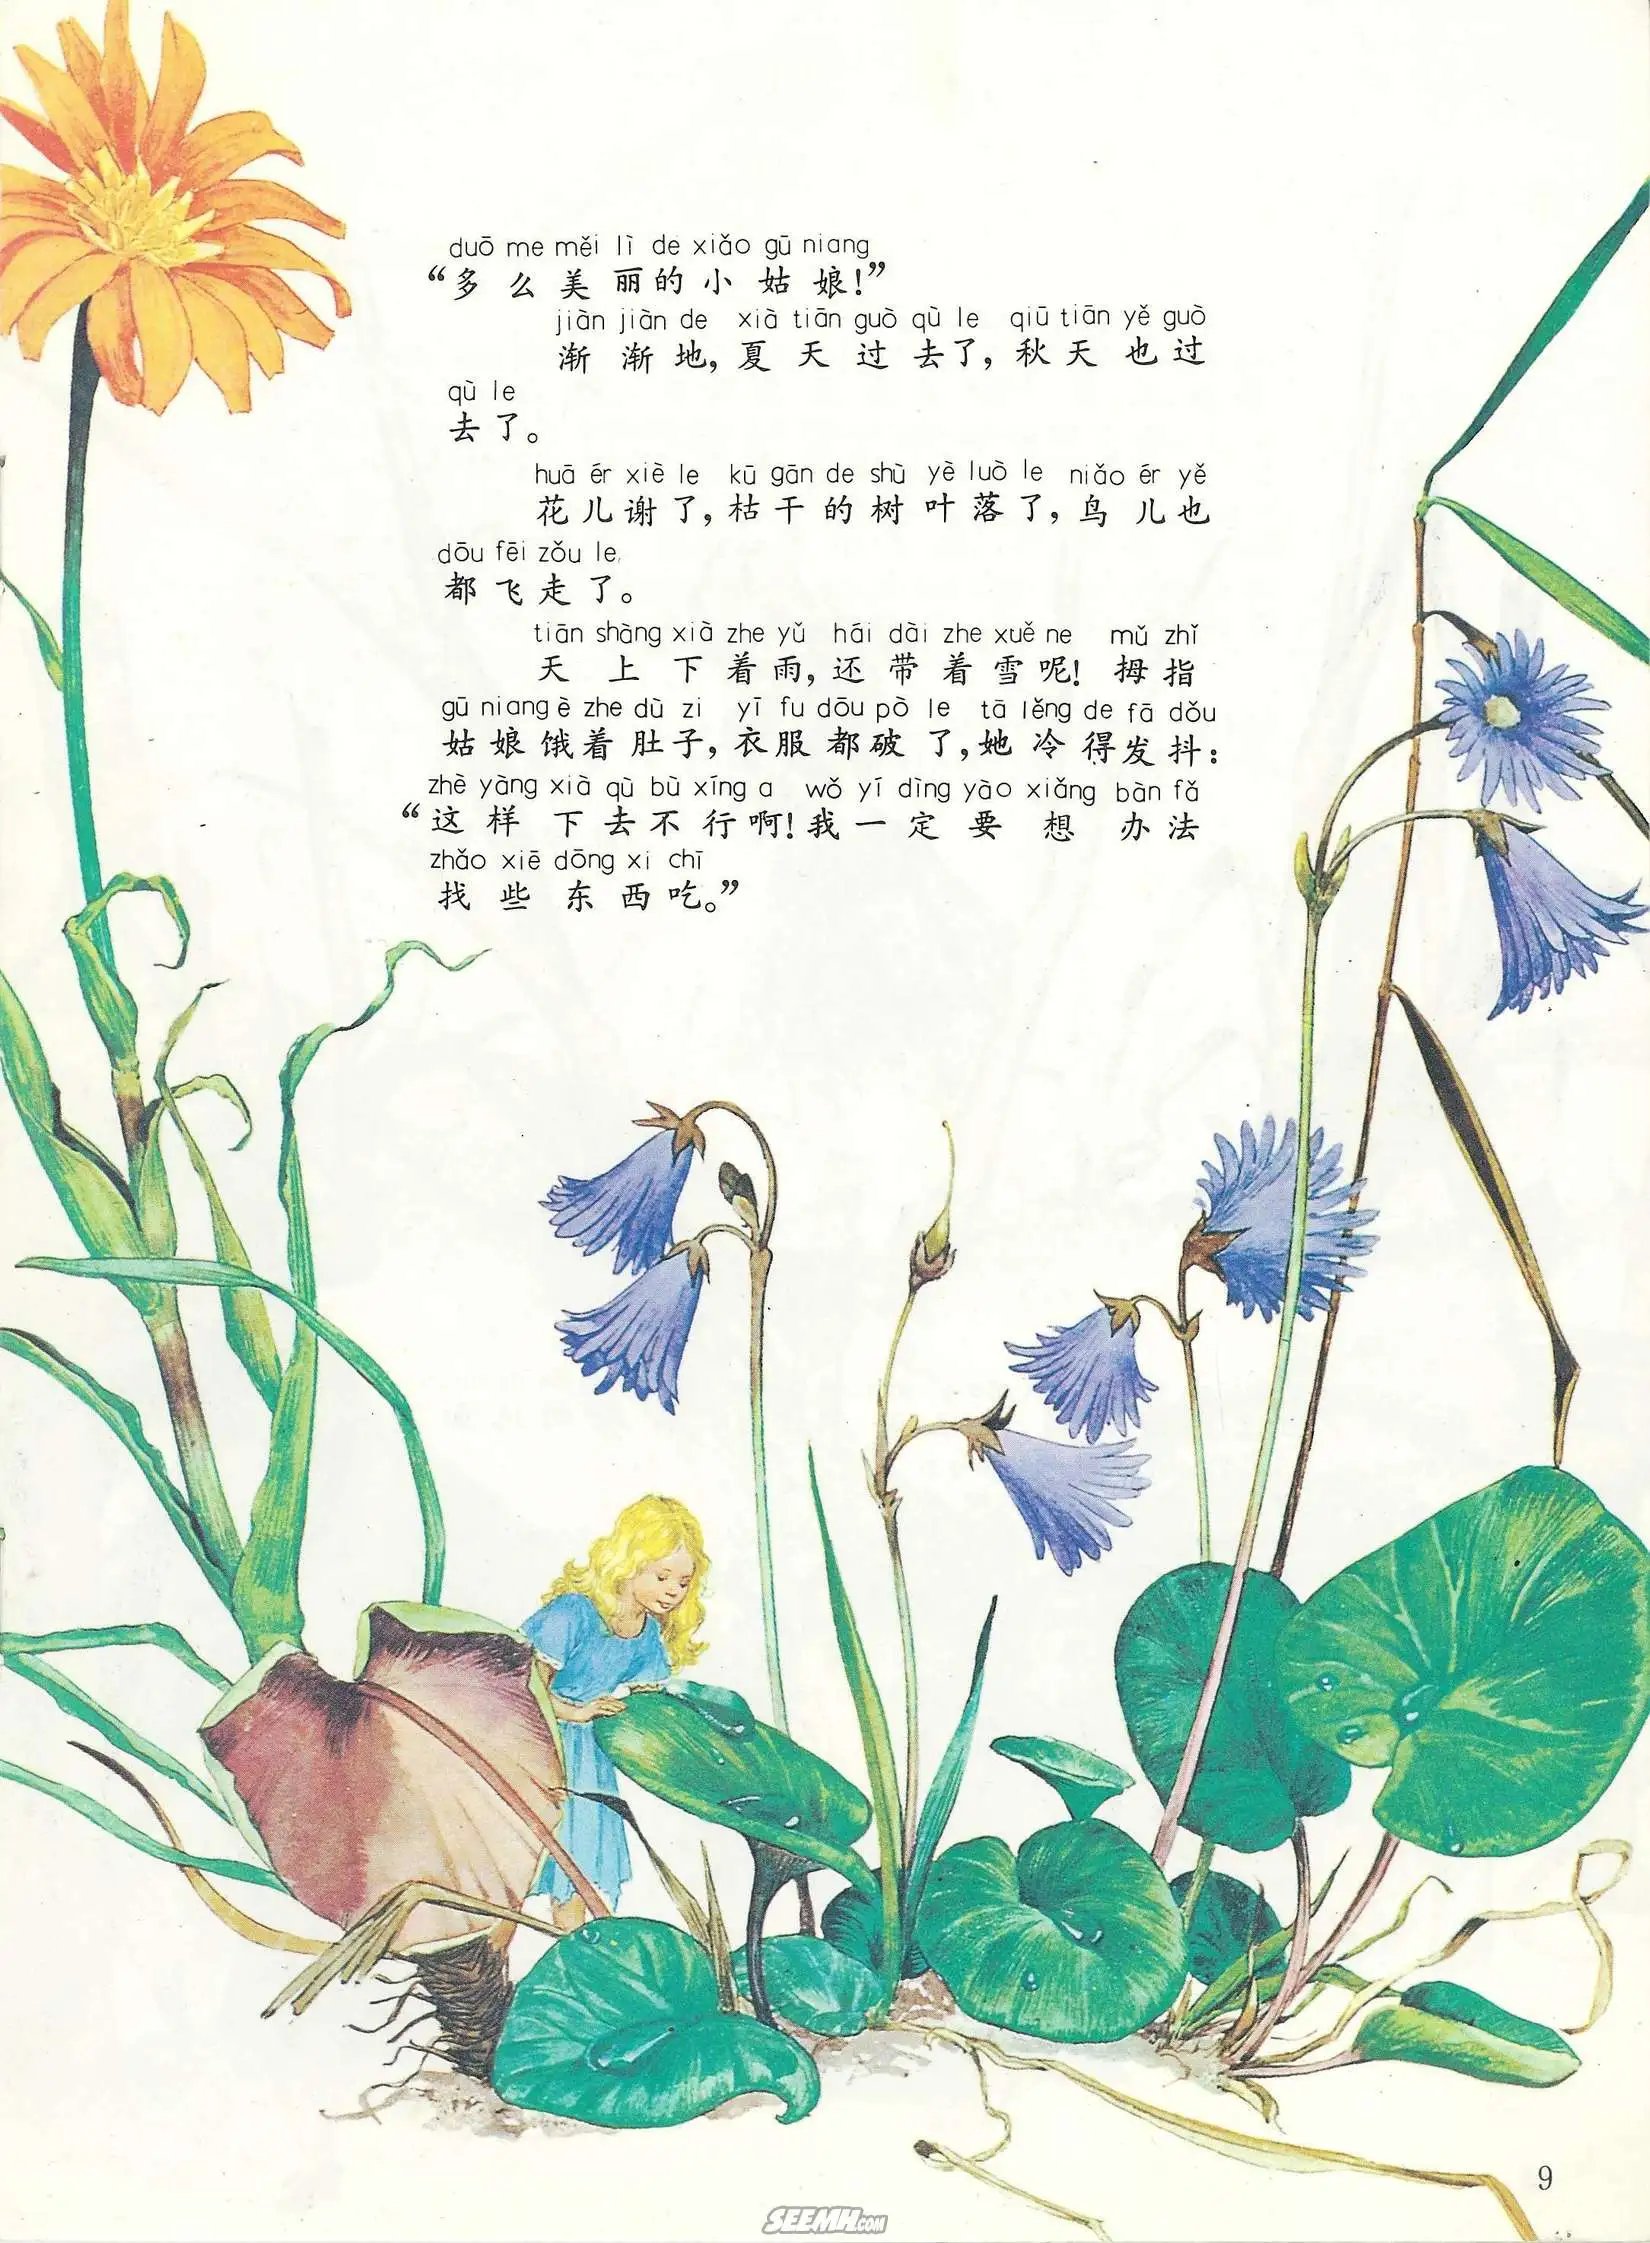 duō me měi lì de xiǎo gū niang
“多么美丽的小姑娘!”
jiàn jiàn de xià tiān guò qù le qiū tiān yě guò
渐渐地,夏天过去了,秋天也过
qù le
去了。
huā ér xiè le kū gān de shù yè luò le niǎo ér yě
花儿谢了,枯干的树叶落了,鸟儿也
dōu fēi zǒu le
都飞走了。
tiān shàng xià zhe yǔ hái dài zhe xuě ne mǔ zhǐ
天上下着雨,还带着雪呢!拇指
gū niang è zhe dù zi yī fu dōu pò le tā lěng de fā dǒu
姑娘饿着肚子,衣服都破了,她冷得发抖:
zhè yàng xià qù bù xíng a wǒ yí dìng yào xiǎng bàn fǎ
“这样下去不行啊!我一定要想办法
zhǎo xiē dōng xi chī
找些东西吃。”
9
SEEMH.COM